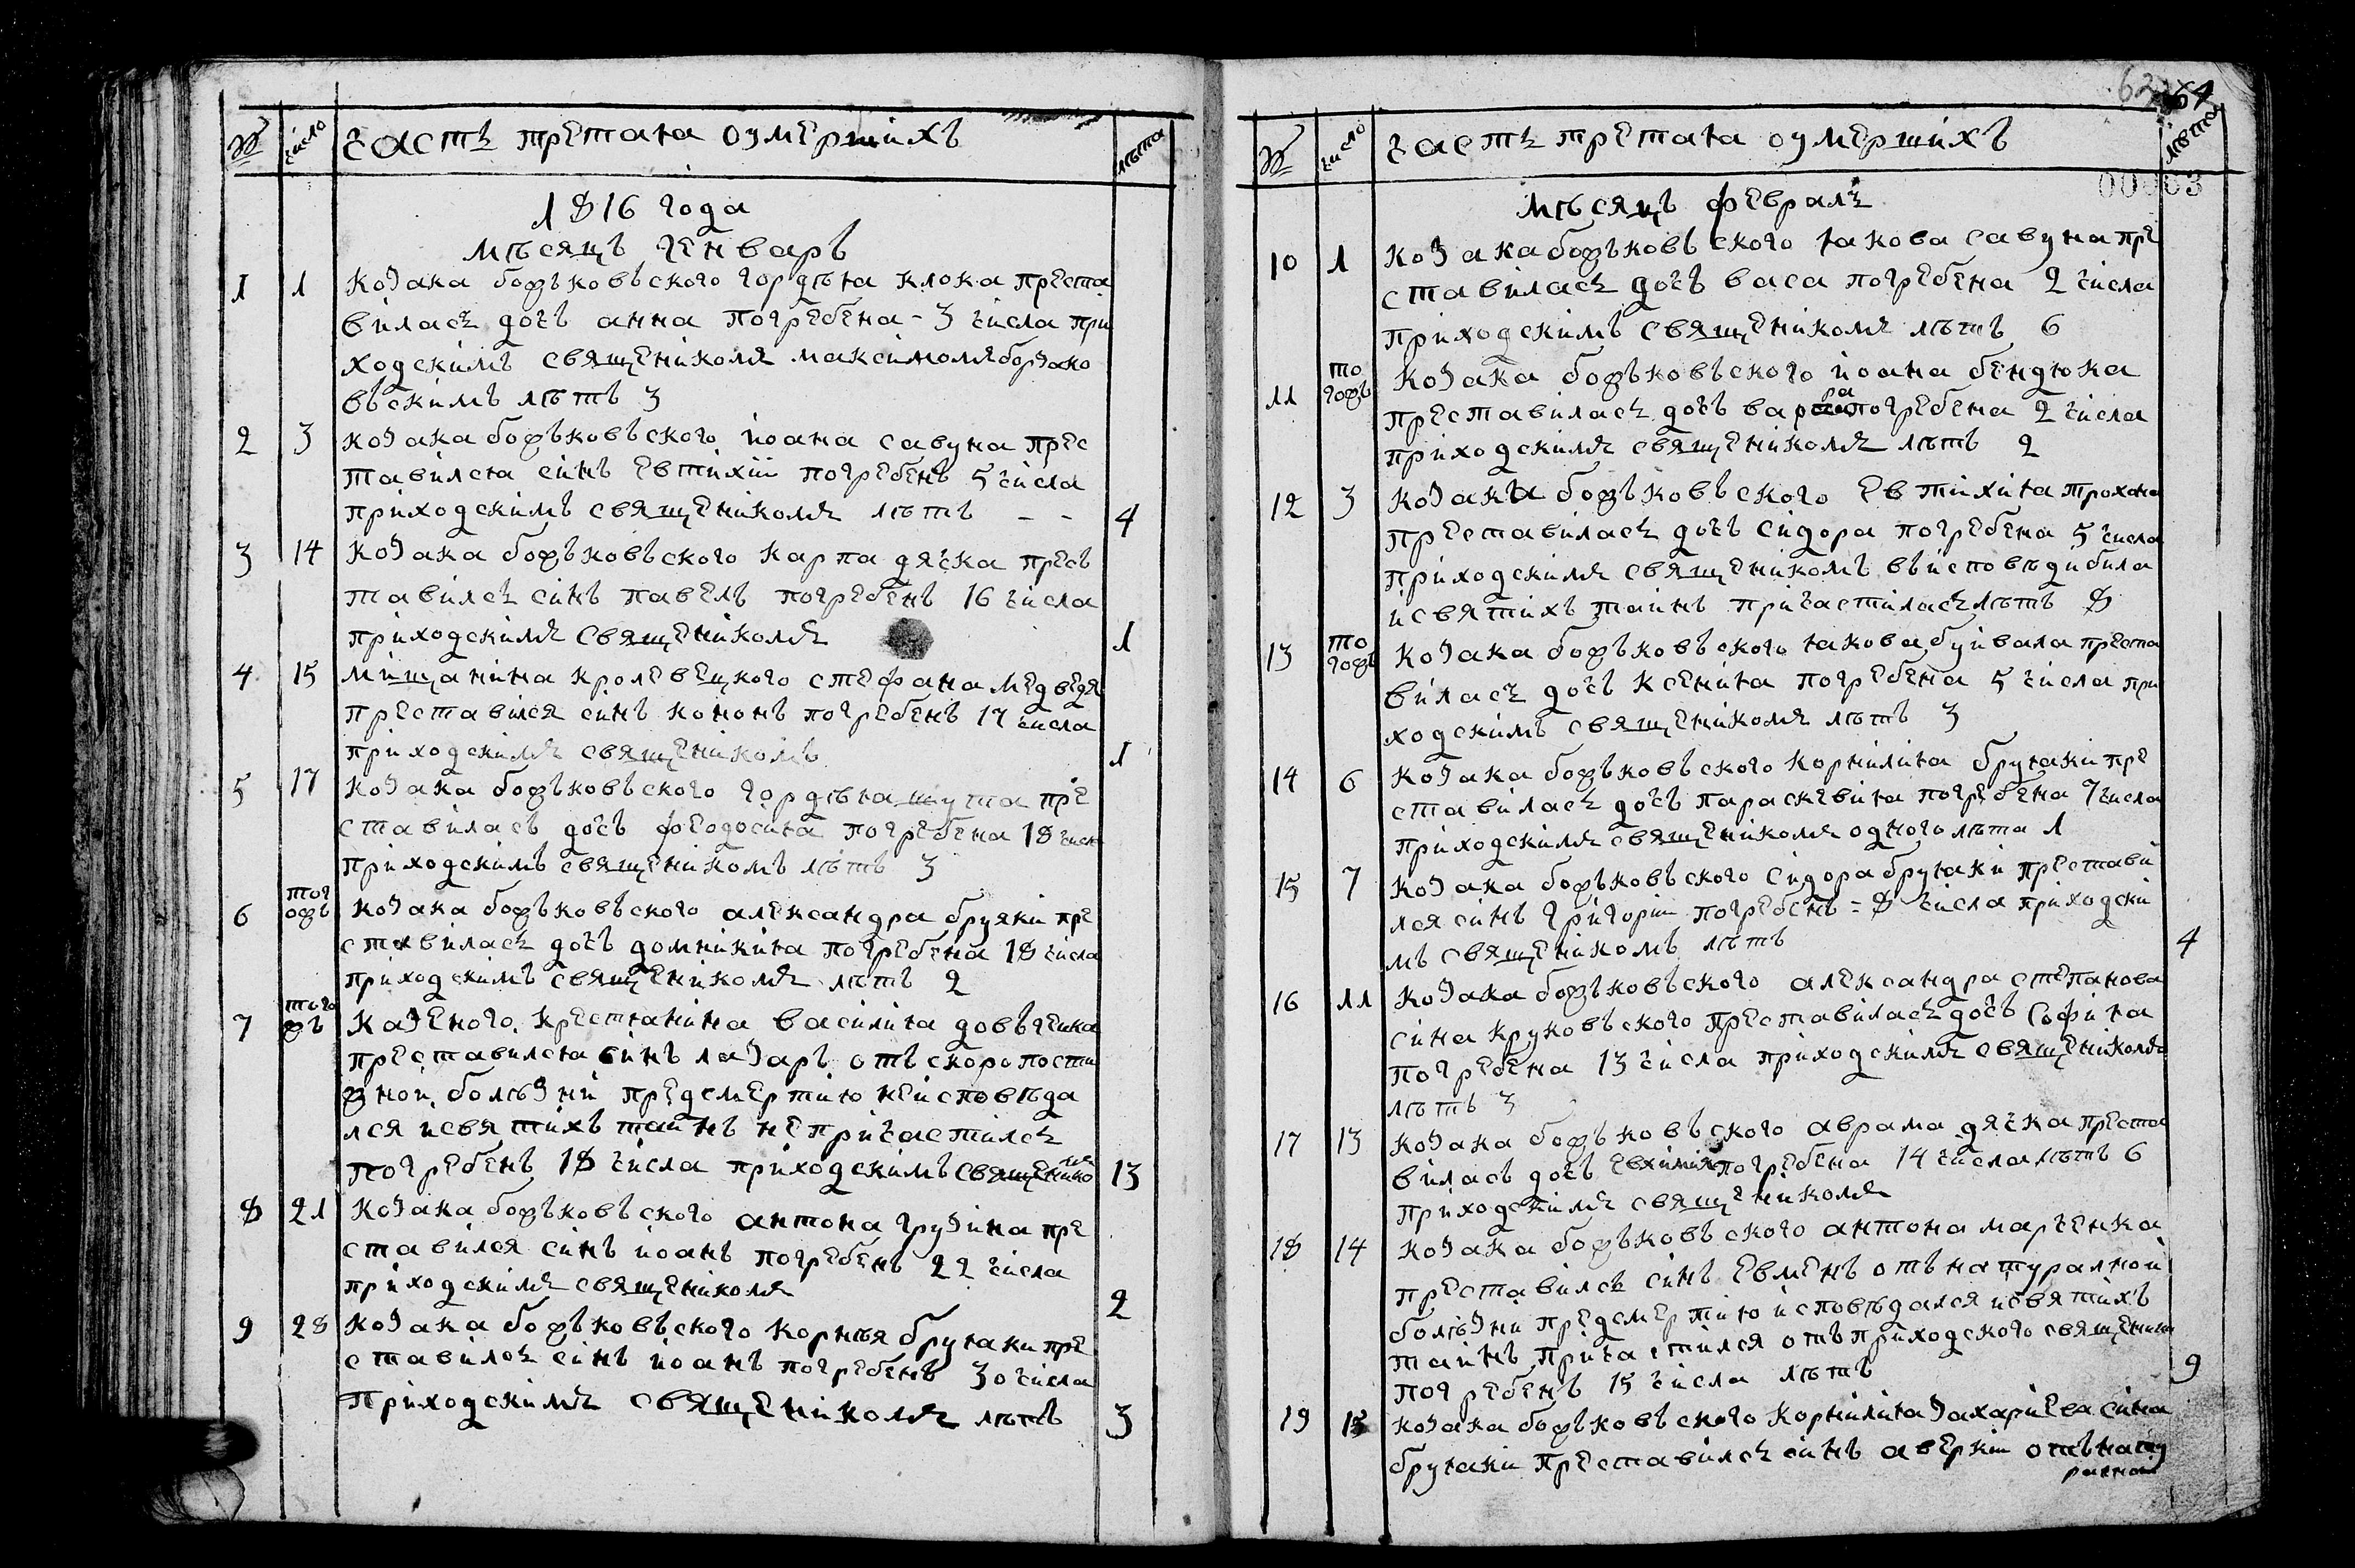 № число часть третая оумершихъ лѣта
1816 года
мѣсяцъ генваръ
1 1 козака бофъковъского гордѣя клока преста
виласъ дочъ анна погребена - 3 числа при
ходскимъ священикомъ максимомъ борзако
въскимъ лѣтъ 3
2 3 козака бофъковъского иоана савуна прес
тавился синъ евтихии погребенъ 5 числа
приходскимъ священикомъ лѣтъ - - 4
3 14 козака бофъковъского карпа дячка пресъ
тавилсъ синъ павелъ погребенъ 16 числа
приходскимъ священикомъ 1
4 15 мищанина кролевецкого стефана медведя
преставился синъ кононъ погребенъ 17 числа
приходскимъ священикомъ 1
5 17 козака бофъковъского гордѣя шута пре
ставиласъ дочъ феодосия погребена 18 числ
приходскимъ священикомъ лѣтъ 3
6 тог
офъ козака бофъковъского александра бруяки пре
ставиласъ дочъ домникия погребена 18 числа
приходскимъ священикомъ лѣтъ 2
7 того
фъ казеного крестянина василия довъгенка
преставился синъ лазаръ отъ скоропости
жной болѣзни предсмертию неисповѣда
лся исвятихъ таинъ непричастилсъ
погребенъ 18 числа приходскимъ священико 13
8 21 козака бофъковъского антона грузина пре
ставился синъ иоанъ погребенъ 22 числа
приходскимъ священикомъ 2
9 28 козака бофъковъского корнѣя бруяки пре
ставилсъ синъ иоанъ погребенъ 30 числа
приходскимъ священикомъ лѣтъ 3
64
№ число часть третая оумершихъ лѣта
00063
мѣсяцъ февралъ
10 1 козака бофъковъского якова савуна пре
ставиласъ дочъ васа погребена 2 числа
приходскимъ священикомъ лѣтъ 6
11 то
гофъ козака бофъковъского иоана бендюка
преставиласъ дочъ варвара погребена 2 числа
приходскимъ священикомъ лѣтъ 2
12 3 козака бофъковъского евтихия трохана
преставиласъ дочъ сидора погребена 5 числа
приходскимъ священикомъ въисповѣди била
исвятихъ таинъ причастиласъ лѣтъ 8
13 то
гофъ козака бофъковъского якова буивала преста
виласъ дочъ ксения погребена 5 числа при
ходскимъ священикомъ лѣтъ 3
14 6 козака бофъковъского корнилия бруяки пре
ставиласъ дочъ параскевия погребена 7 числа
приходскимъ священикомъ одного лѣта 1
15 7 козака бофъковъского сидора бруяки престави
лся синъ григории погребенъ = 8 числа приходски
мъ священикомъ лѣтъ 4
16 11 козака бофъковъского александра степанова
сина круковъского преставиласъ дочъ софия
погребена 13 числа приходскимъ священикомъ
лѣтъ 3
17 13 козака бофъковъского аврама дячка преста
виласъ дочъ евхимия погребена 14 числа лѣтъ 6
приходскимъ священикомъ
18 14 козака бофъковъского антона марченка
преставилсъ синъ евменъ отънатуралной
болѣзни предсмертию исповѣдался исвятихъ
таинъ причастился отъприходского священика
погребенъ 15 числа лѣтъ 9
19 15 козака бофъковъского корнилия захариева сина
бруяки преставилсъ синъ аверкии отънату
ралной